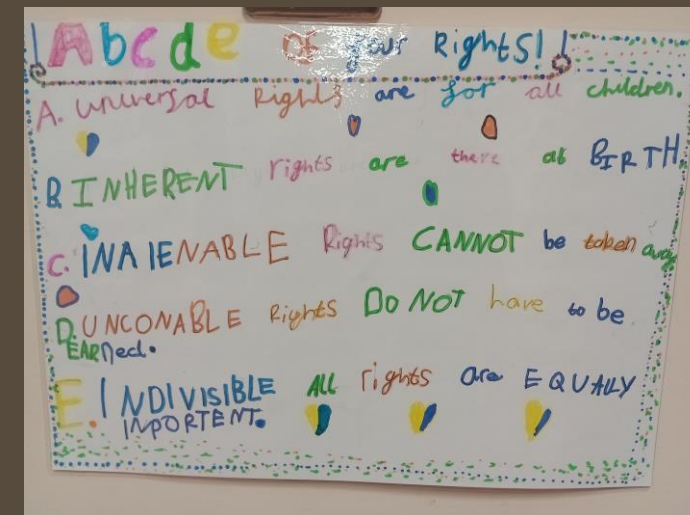 Abcde of your Rights!
A. universal Rights are for all children.
B. INHERENT rights are there at BIRTH
C. INAIENABLE Rights CANNOT be taken away
D. UNCONABLE Rights DO NOT have to be
EARNed.
E. INDIVISIBLE All rights are EQUALLY
INPORTENT.